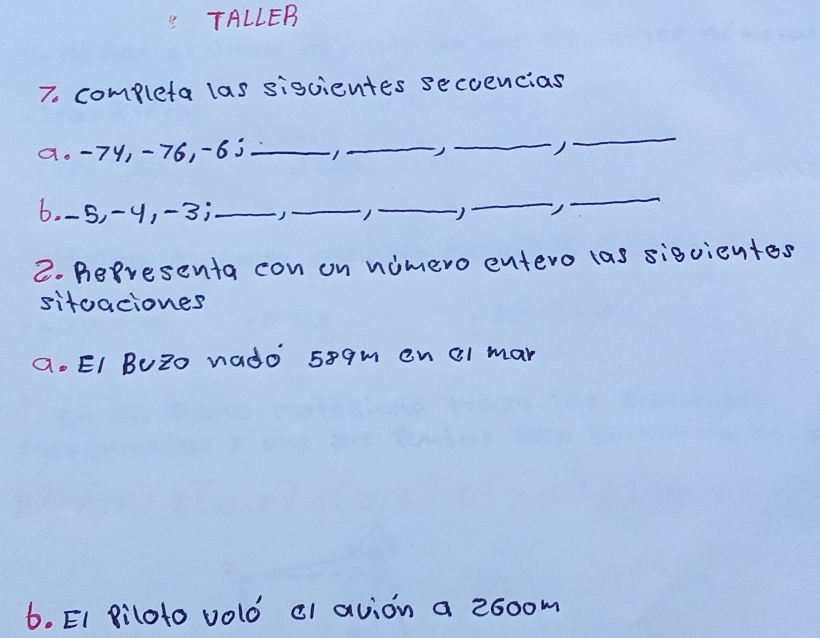 TALLER
7. completa las siguientes secuencias
a. -74, -76, -6; ____, ____, ____, ____
b. -5, -4, -3; ____, ____, ____, ____, ____
2. Representa con un número entero las siguientes
situaciones
a. El Buzo nadó 589m en el mar
b. El Piloto voló el avión a 2600m